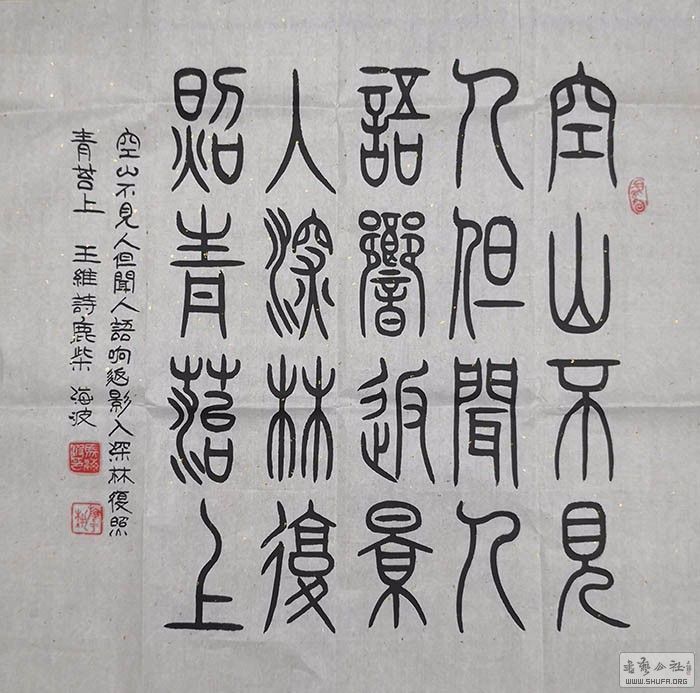 空山不見
人但聞人
語響返景
入深林復
照青苔上
空山不見人但聞人語响返影入深林復照
青苔上 王維詩鹿柴 海波
書藝公社
WWW.SHUFA.ORG